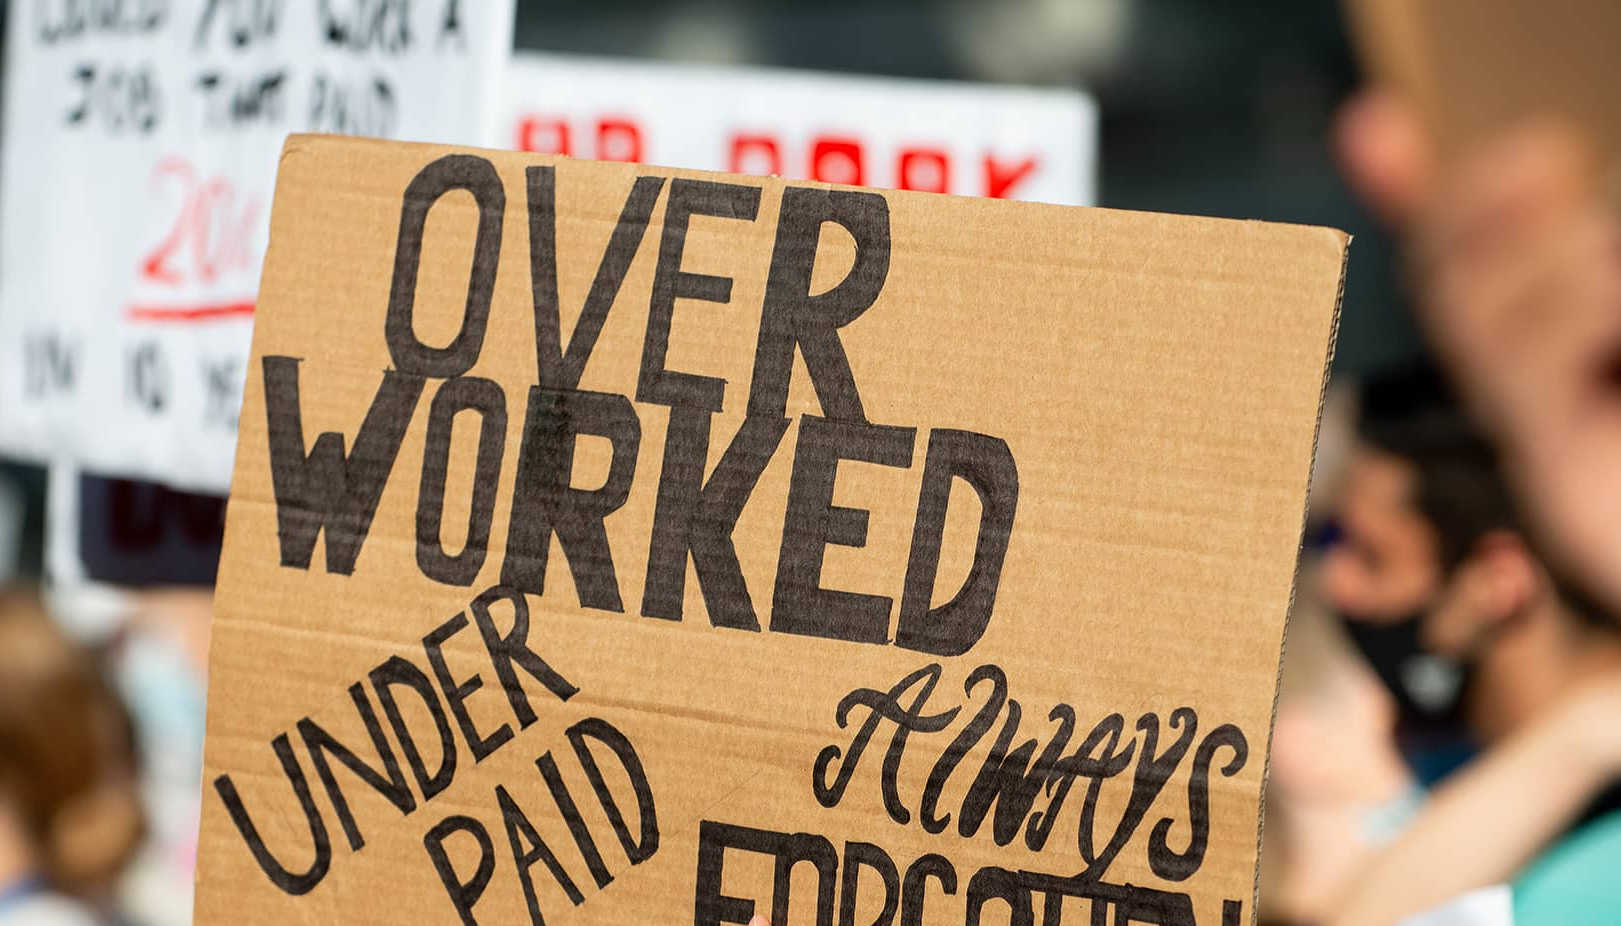 YOU WORK A
JOB THAT PAID
IN 10
OVER
WORKED
UNDER
PAID
ALWAYS
FORGOTTEN